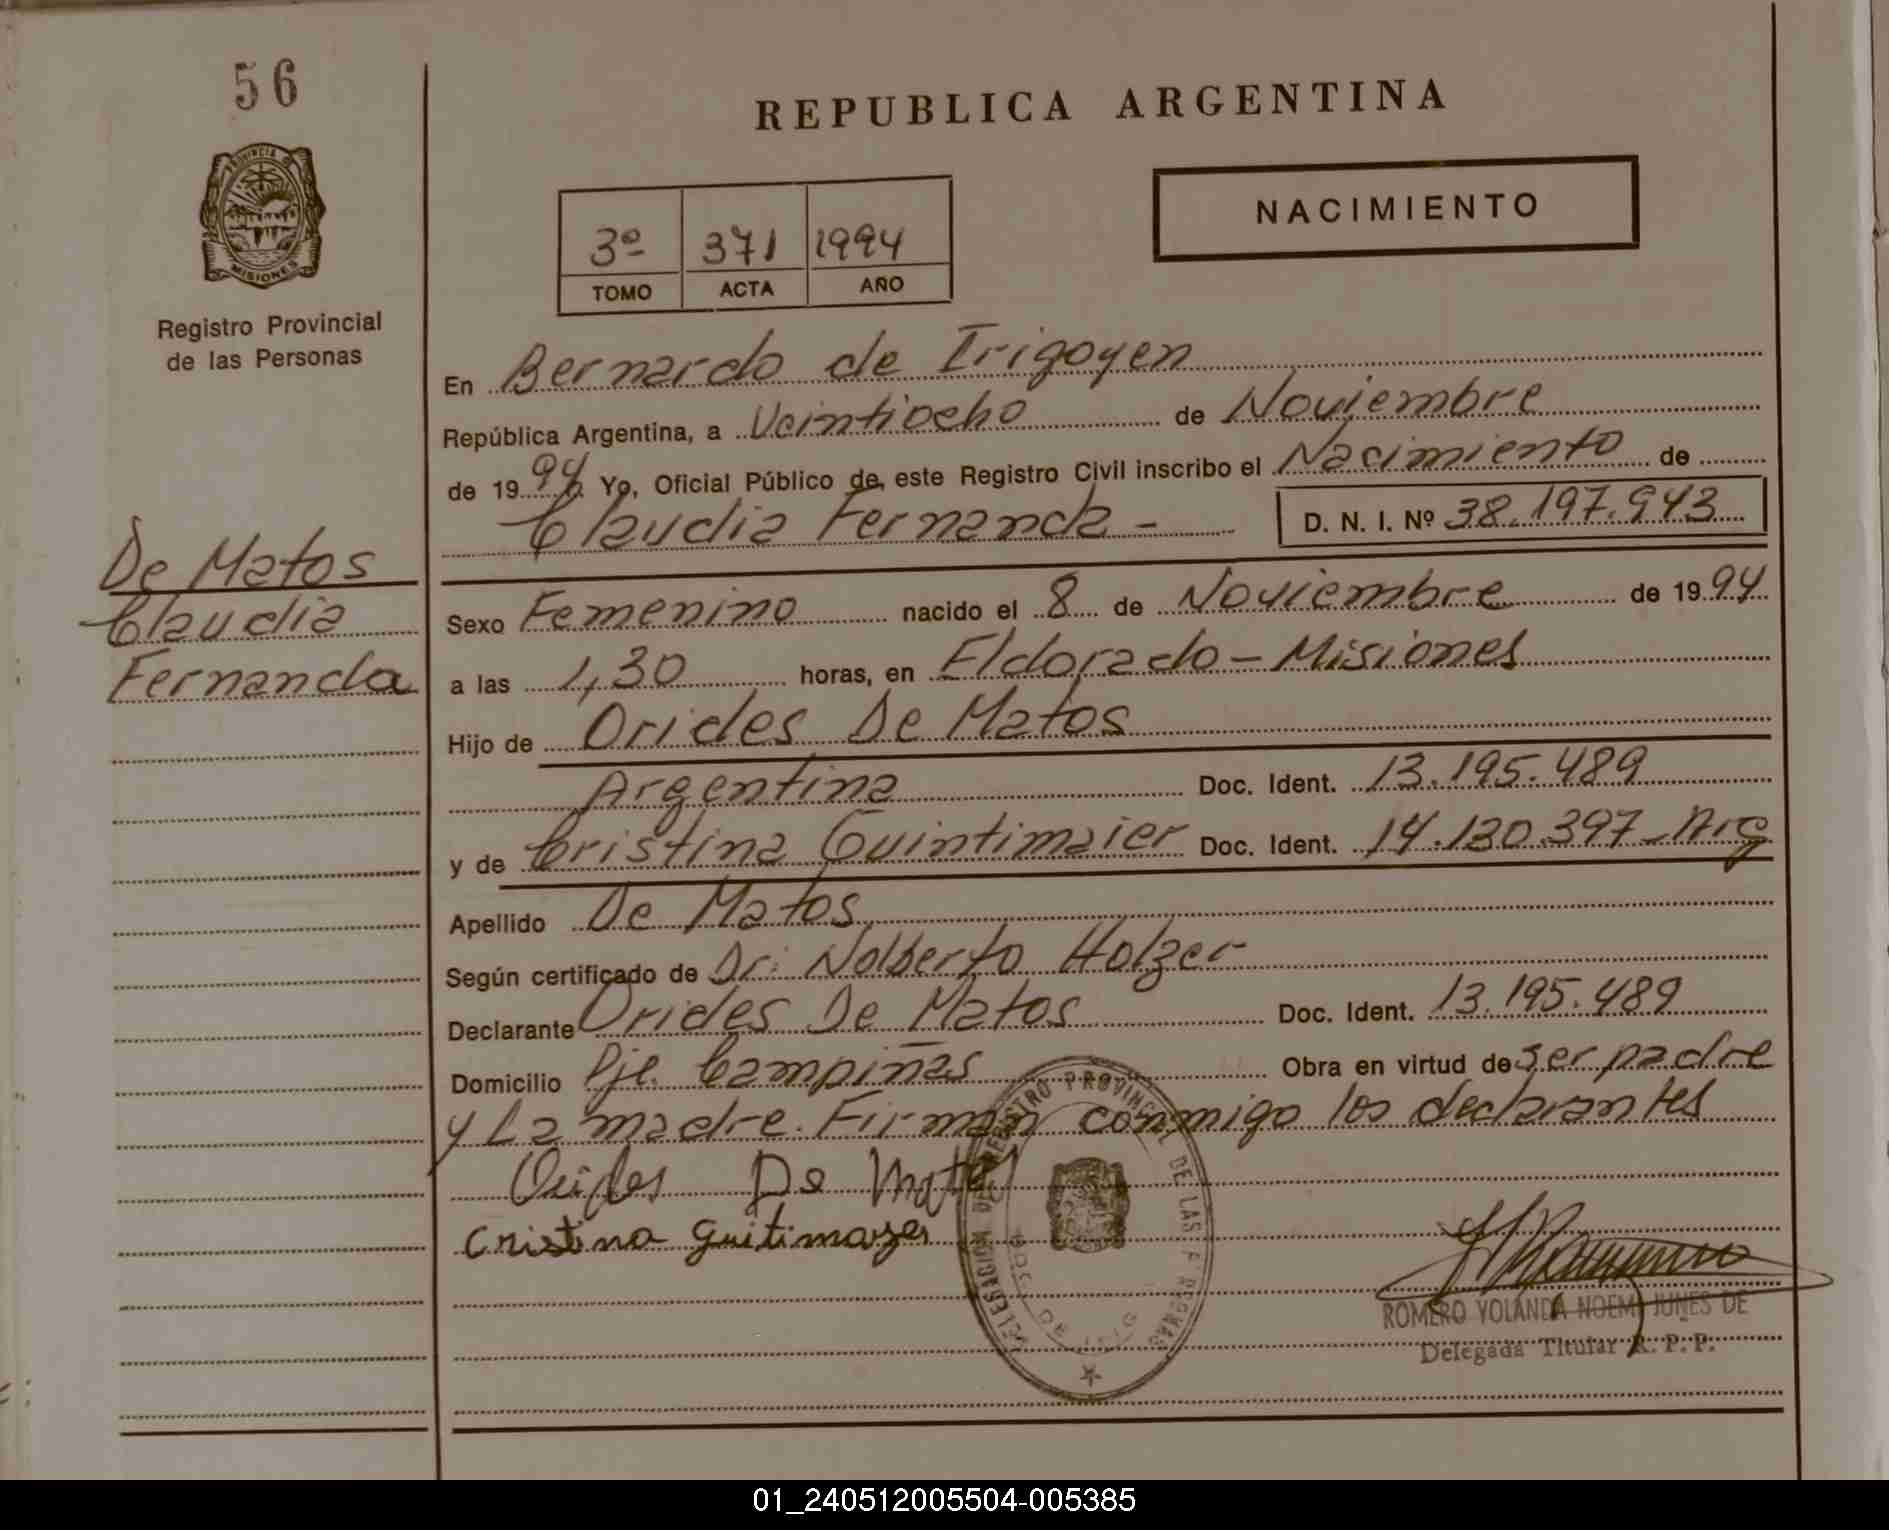 56
PROVINCIA DE
MISIONES
Registro Provincial
de las Personas
De Matos
Claudia
Fernanda
REPUBLICA ARGENTINA
3º 371 1994
TOMO ACTA AÑO
NACIMIENTO
En Bernardo de Irigoyen
República Argentina, a Veintiocho de Noviembre
de 1994. Yo, Oficial Público de este Registro Civil inscribo el Nacimiento de
Claudia Fernanda - D. N. I. Nº 38.197.943
Sexo Femenino nacido el 8 de Noviembre de 1994
a las 1,30 horas, en Eldorado - Misiones
Hijo de Orides De Matos
Argentina Doc. Ident. 13.195.489
y de Cristina Guintimaier Doc. Ident. 14.130.397 - Arg
Apellido De Matos
Según certificado de Dr. Nolberto Holzer
Declarante Orides De Matos Doc. Ident. 13.195.489
Domicilio Pje. Campiñas Obra en virtud de ser padre
y La madre. Firman conmigo los declarantes
De Matos
Cristina
DELEGACION DE REGISTRO PROVINCIAL DE LAS PERSONAS
BDO. DE IRIG
ROMERO YOLANDA NOEMI JUNES DE
Delegada Titular R. P. P.
01_240512005504-005385